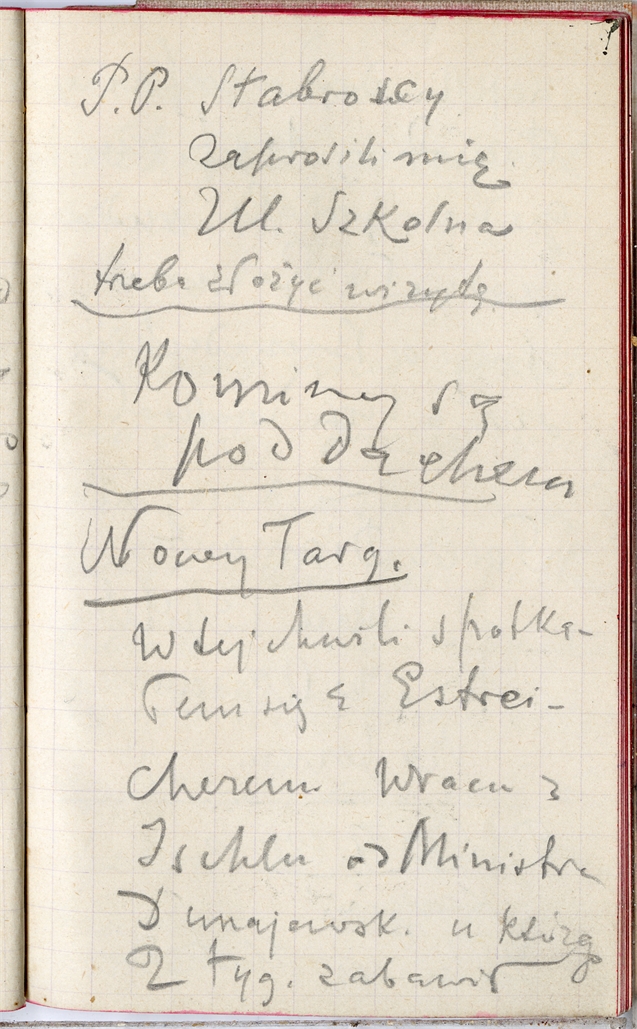 P.P. Stabroscy
zaprosili mię
Ul. Szkolna
trzeba złożyć wizytę
Kominy są
pod Dachem
Nowy Targ.
W tej chwili spotka-
łem się z Estrei-
cherem Wraca z
Ischlu od Ministra
Dunajewsk. u którego
2 tyg. zabawił